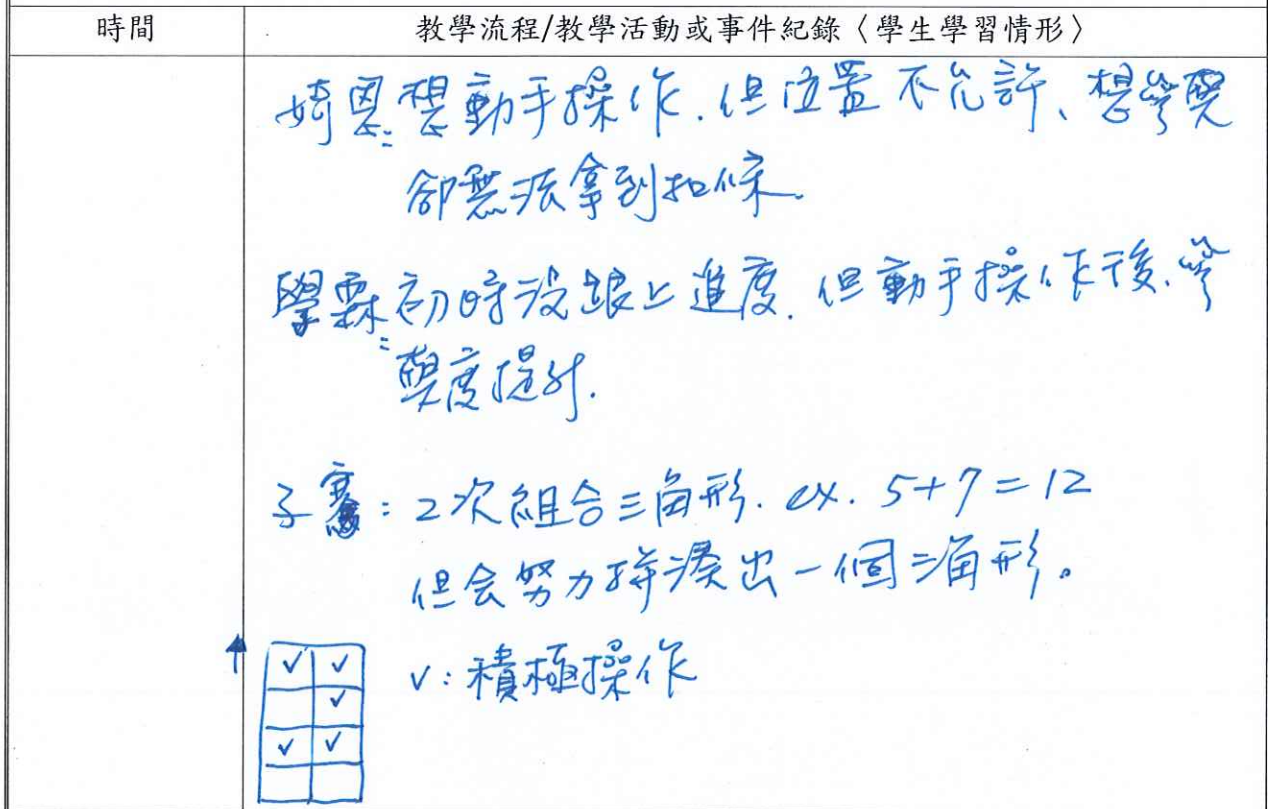 時間 教學流程/教學活動或事件紀錄〈學生學習情形〉
綺恩:想動手操作.但位置不允許、想參與
卻無法拿到扣條.
學霖:初時沒跟上進度.但動手操作後、參
與度提升.
子騫:2次組合三角形. ex. 5+7=12
但会努力拼湊出一個三角形。
↑ ✓ ✓ v:積極操作
✓
✓ ✓